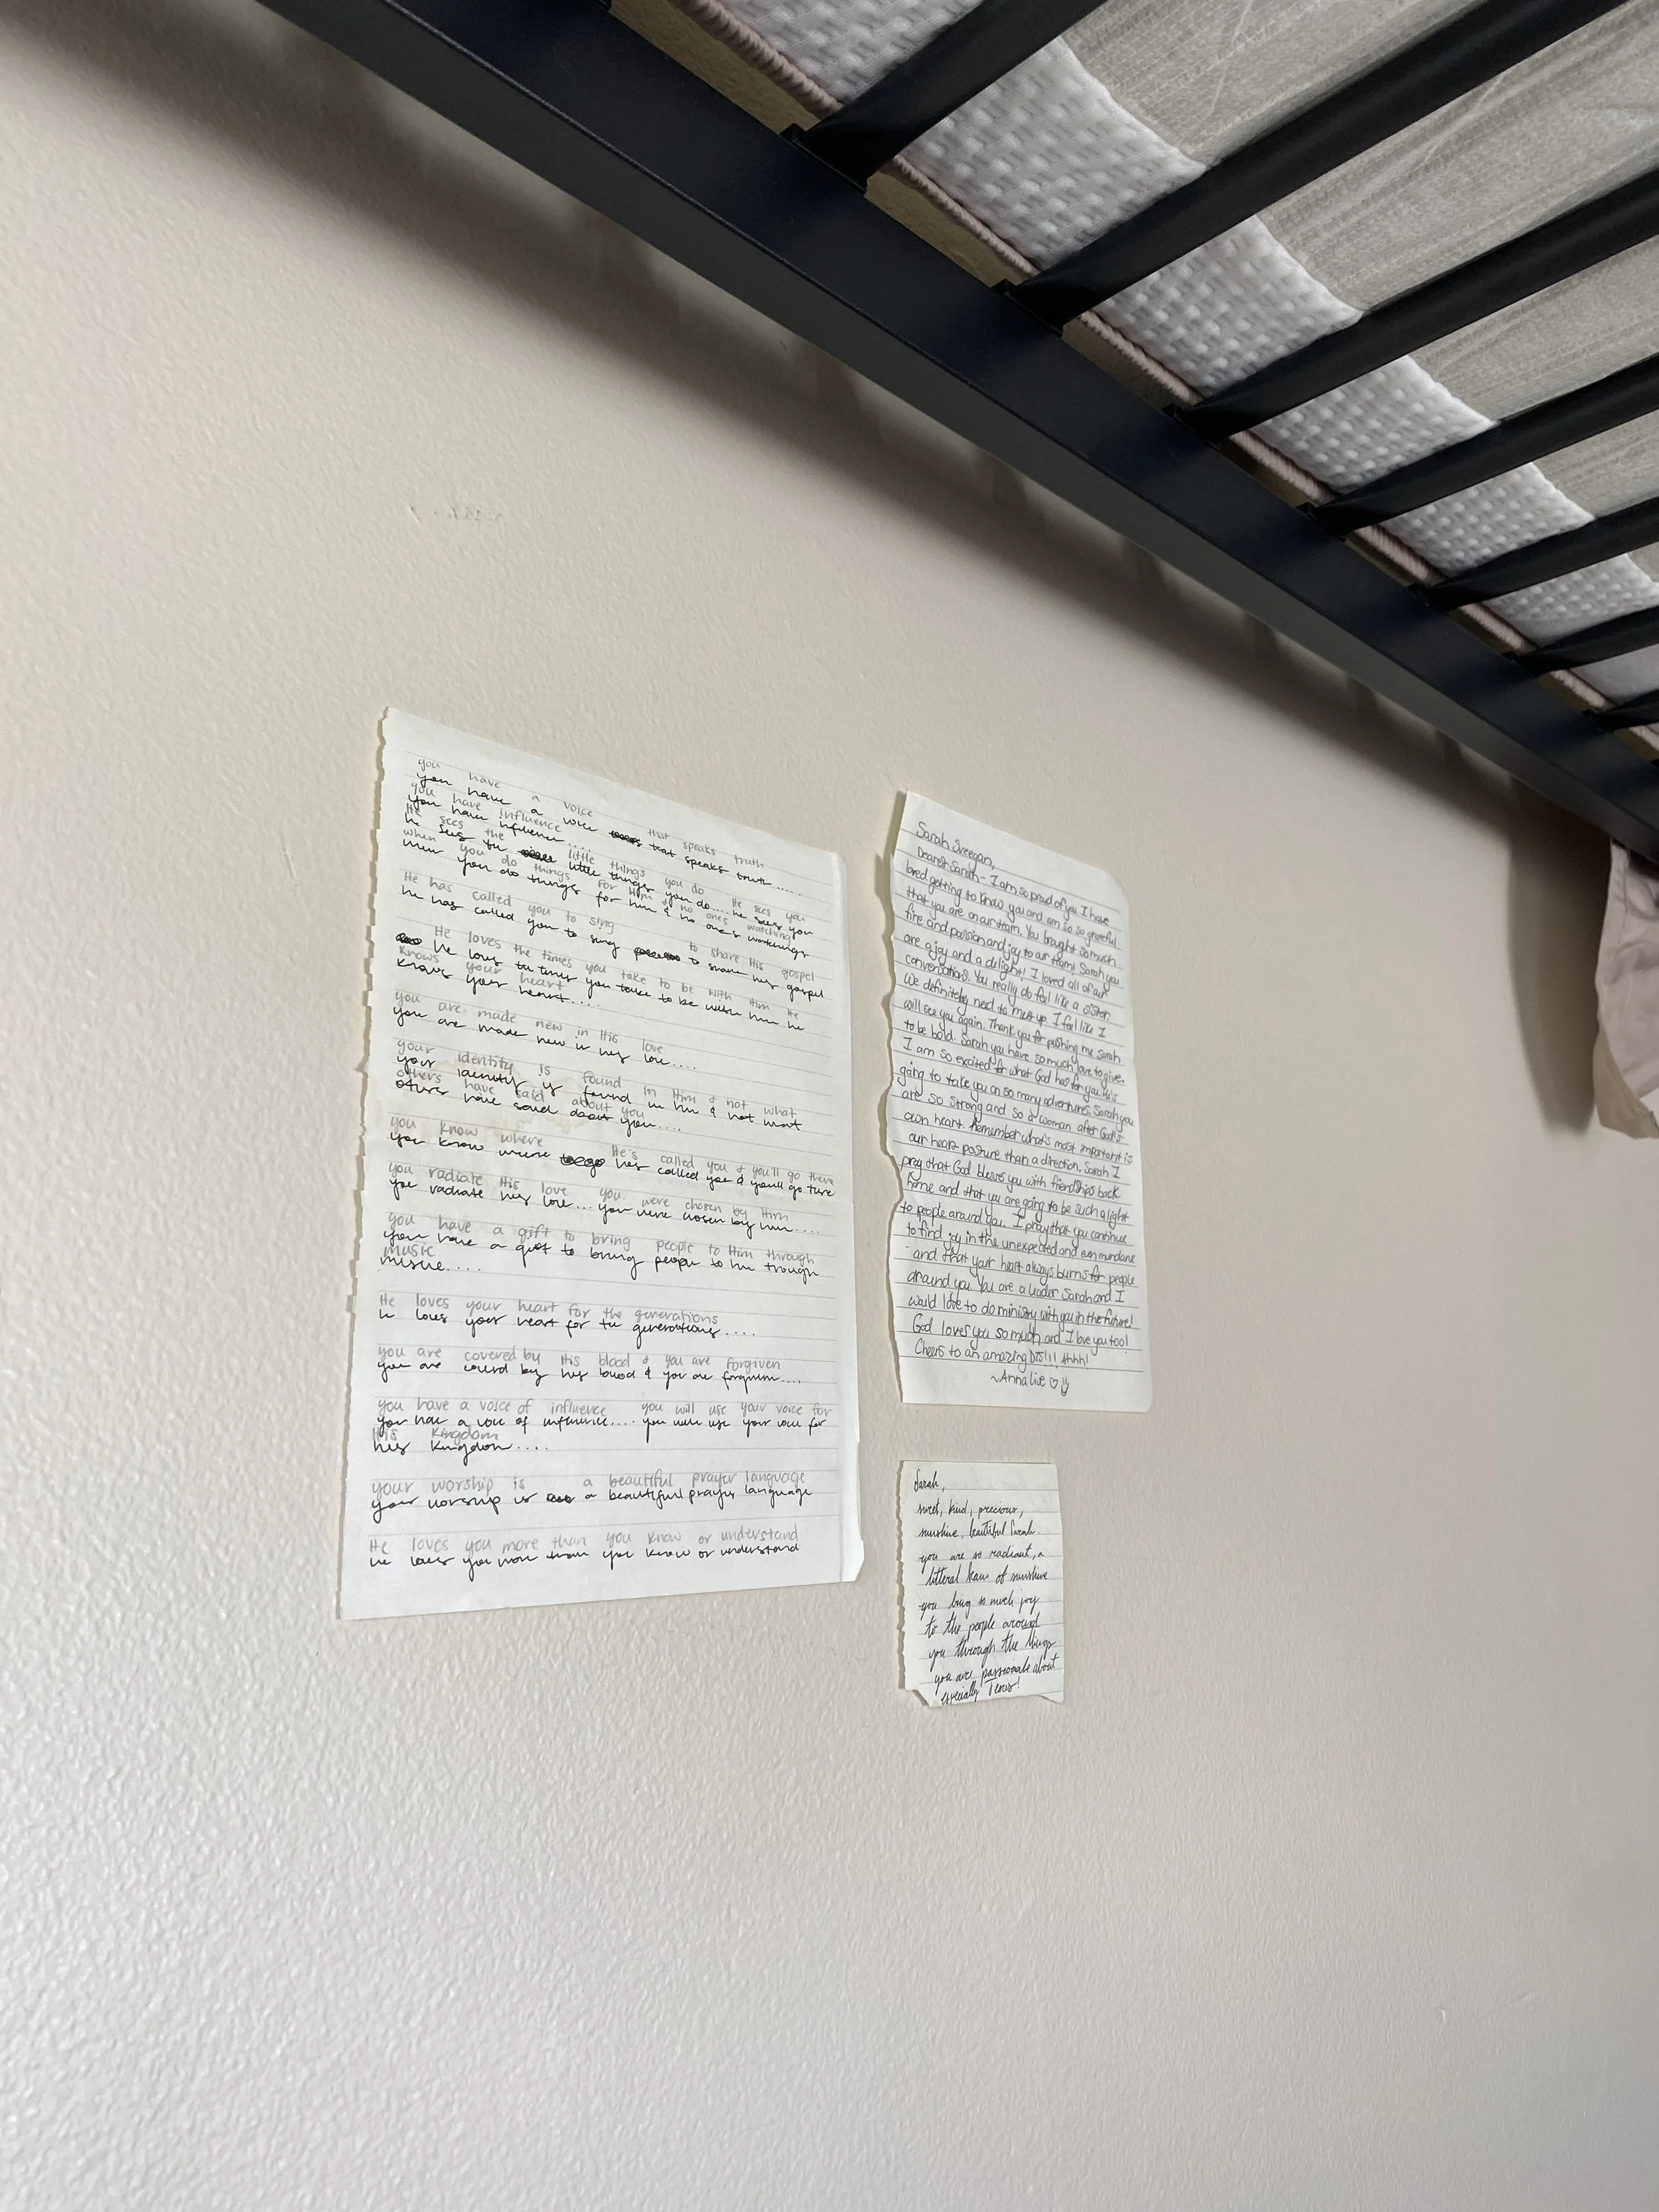 you have a voice that speaks truth
you have a voice that speaks truth.....
you have influence
you have influence....
He sees the little things you do He sees you
he sees the little things you do.... he sees you
when you do things for Him & no ones watching
when you do things for him & no ones watching
He has called you to sing to share His gospel
he has called you to sing to share his gospel
He loves the times you take to be with Him He
he loves the times you take to be with him he
knows your heart
knows your heart....
you are made new in His love
you are made new in his love....
your identity is found in Him & not what
your identity is found in him & not what
others have said about you
others have said about you....
you know where He's called you & you'll go there
you know where hes called you & youll go there
you radiate His love you were chosen by Him
you radiate his love... you were chosen by him....
you have a gift to bring people to Him through
you have a gift to bring people to him through
music
music....
He loves your heart for the generations
he loves your heart for the generations....
you are covered by His blood & you are forgiven
you are covered by his blood & you are forgiven....
you have a voice of influence you will use your voice for
you have a voice of influence.... you will use your voice for
His Kingdom
his Kingdom....
your worship is a beautiful prayer language
your worship is a beautiful prayer language
He loves you more than you know or understand
he loves you more than you know or understand
Sarah
Dearest Sarah- I am so proud of you. I have
loved getting to know you and am so so grateful
that you are on our team. You brought so much
fire and passion and joy to our team! Sarah you
are a joy and a delight! I loved all of our
conversations. You really do feel like a sister
We definitely need to meet up. I feel like I
will see you again. Thank you for pushing me Sarah
to be bold. Sarah you have so much love to give.
I am so excited for what God has for you. He's
going to take you on so many adventures. Sarah you
are so strong and so a woman after God's
own heart. Remember what's most important is
our heart posture than a direction. Sarah I
pray that God blesses you with friendships back
home and that you are going to be such a light
to people around you. I pray that you continue
to find joy in the unexpected and even mundane
and that your heart always burns for people
around you. You are a leader Sarah and I
would love to do ministry with you in the future!
God loves you so much and I love you too!
Cheers to an amazing DTS!!! Ahhh!
~Annalise
Sarah,
sweet, kind, precious,
sunshine, beautiful Sarah.
you are so radiant, a
litteral beam of sunshine
you bring so much joy
to the people around
you through the things
you are passionate about
especially Jesus!